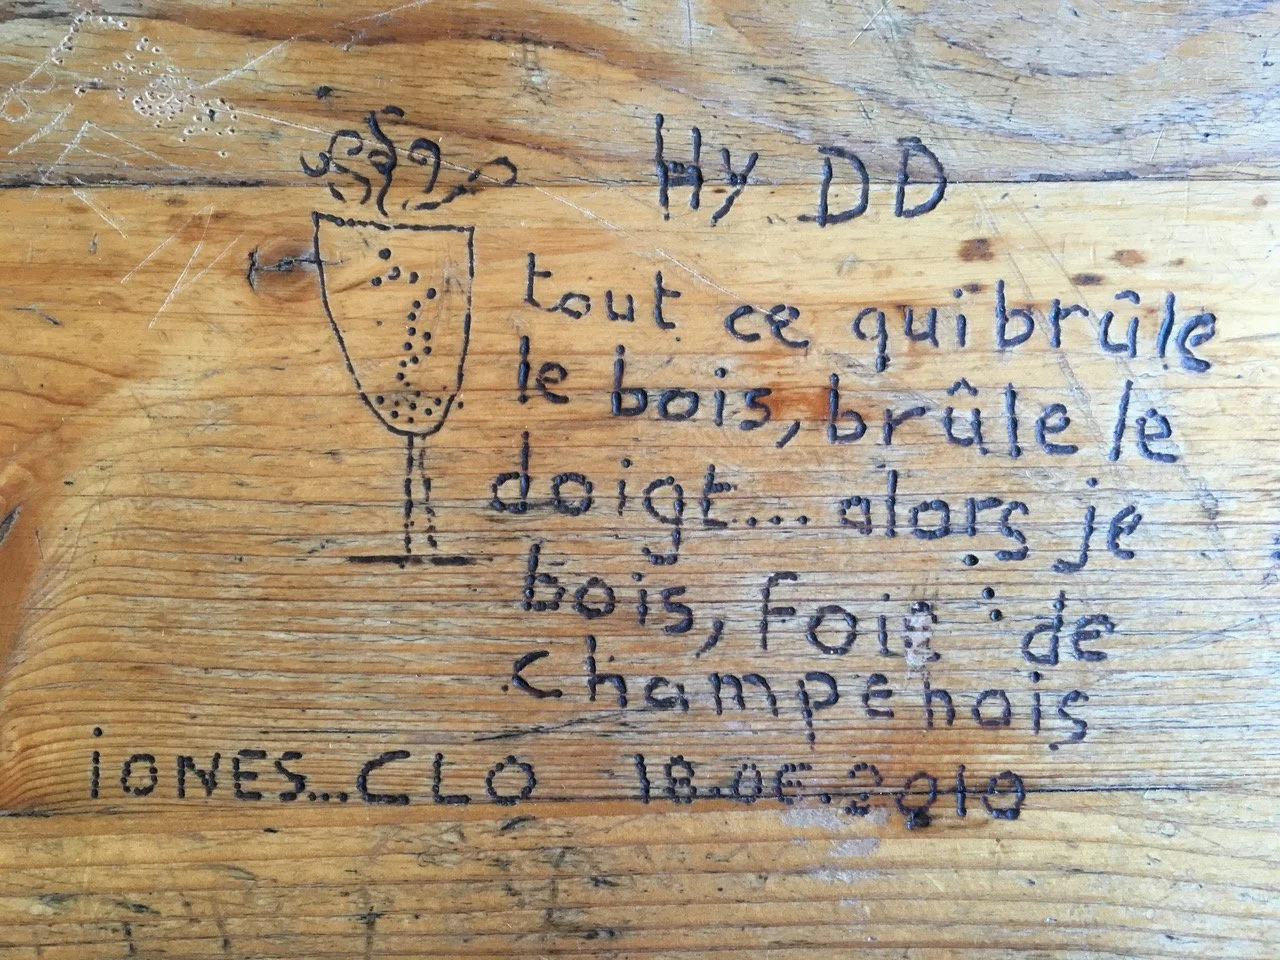 Hy DD
tout ce qui brûle
le bois, brûle le
doigt... alors je
bois, Foie : de
champenois
iONES...CLO 18.06.2010